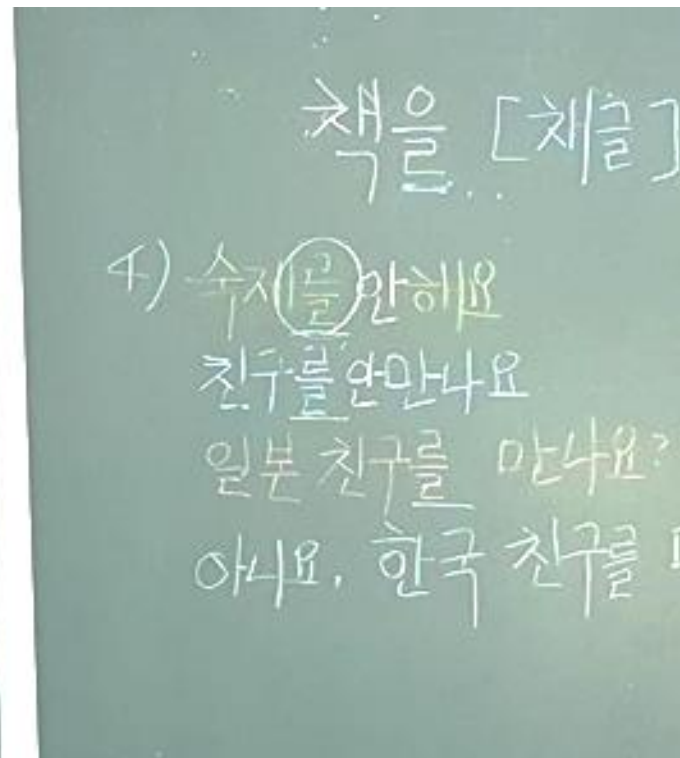 책을 [채글]
4) 숙제를 안 해요
친구를 안 만나요
일본 친구를 만나요?
아니요. 한국 친구를